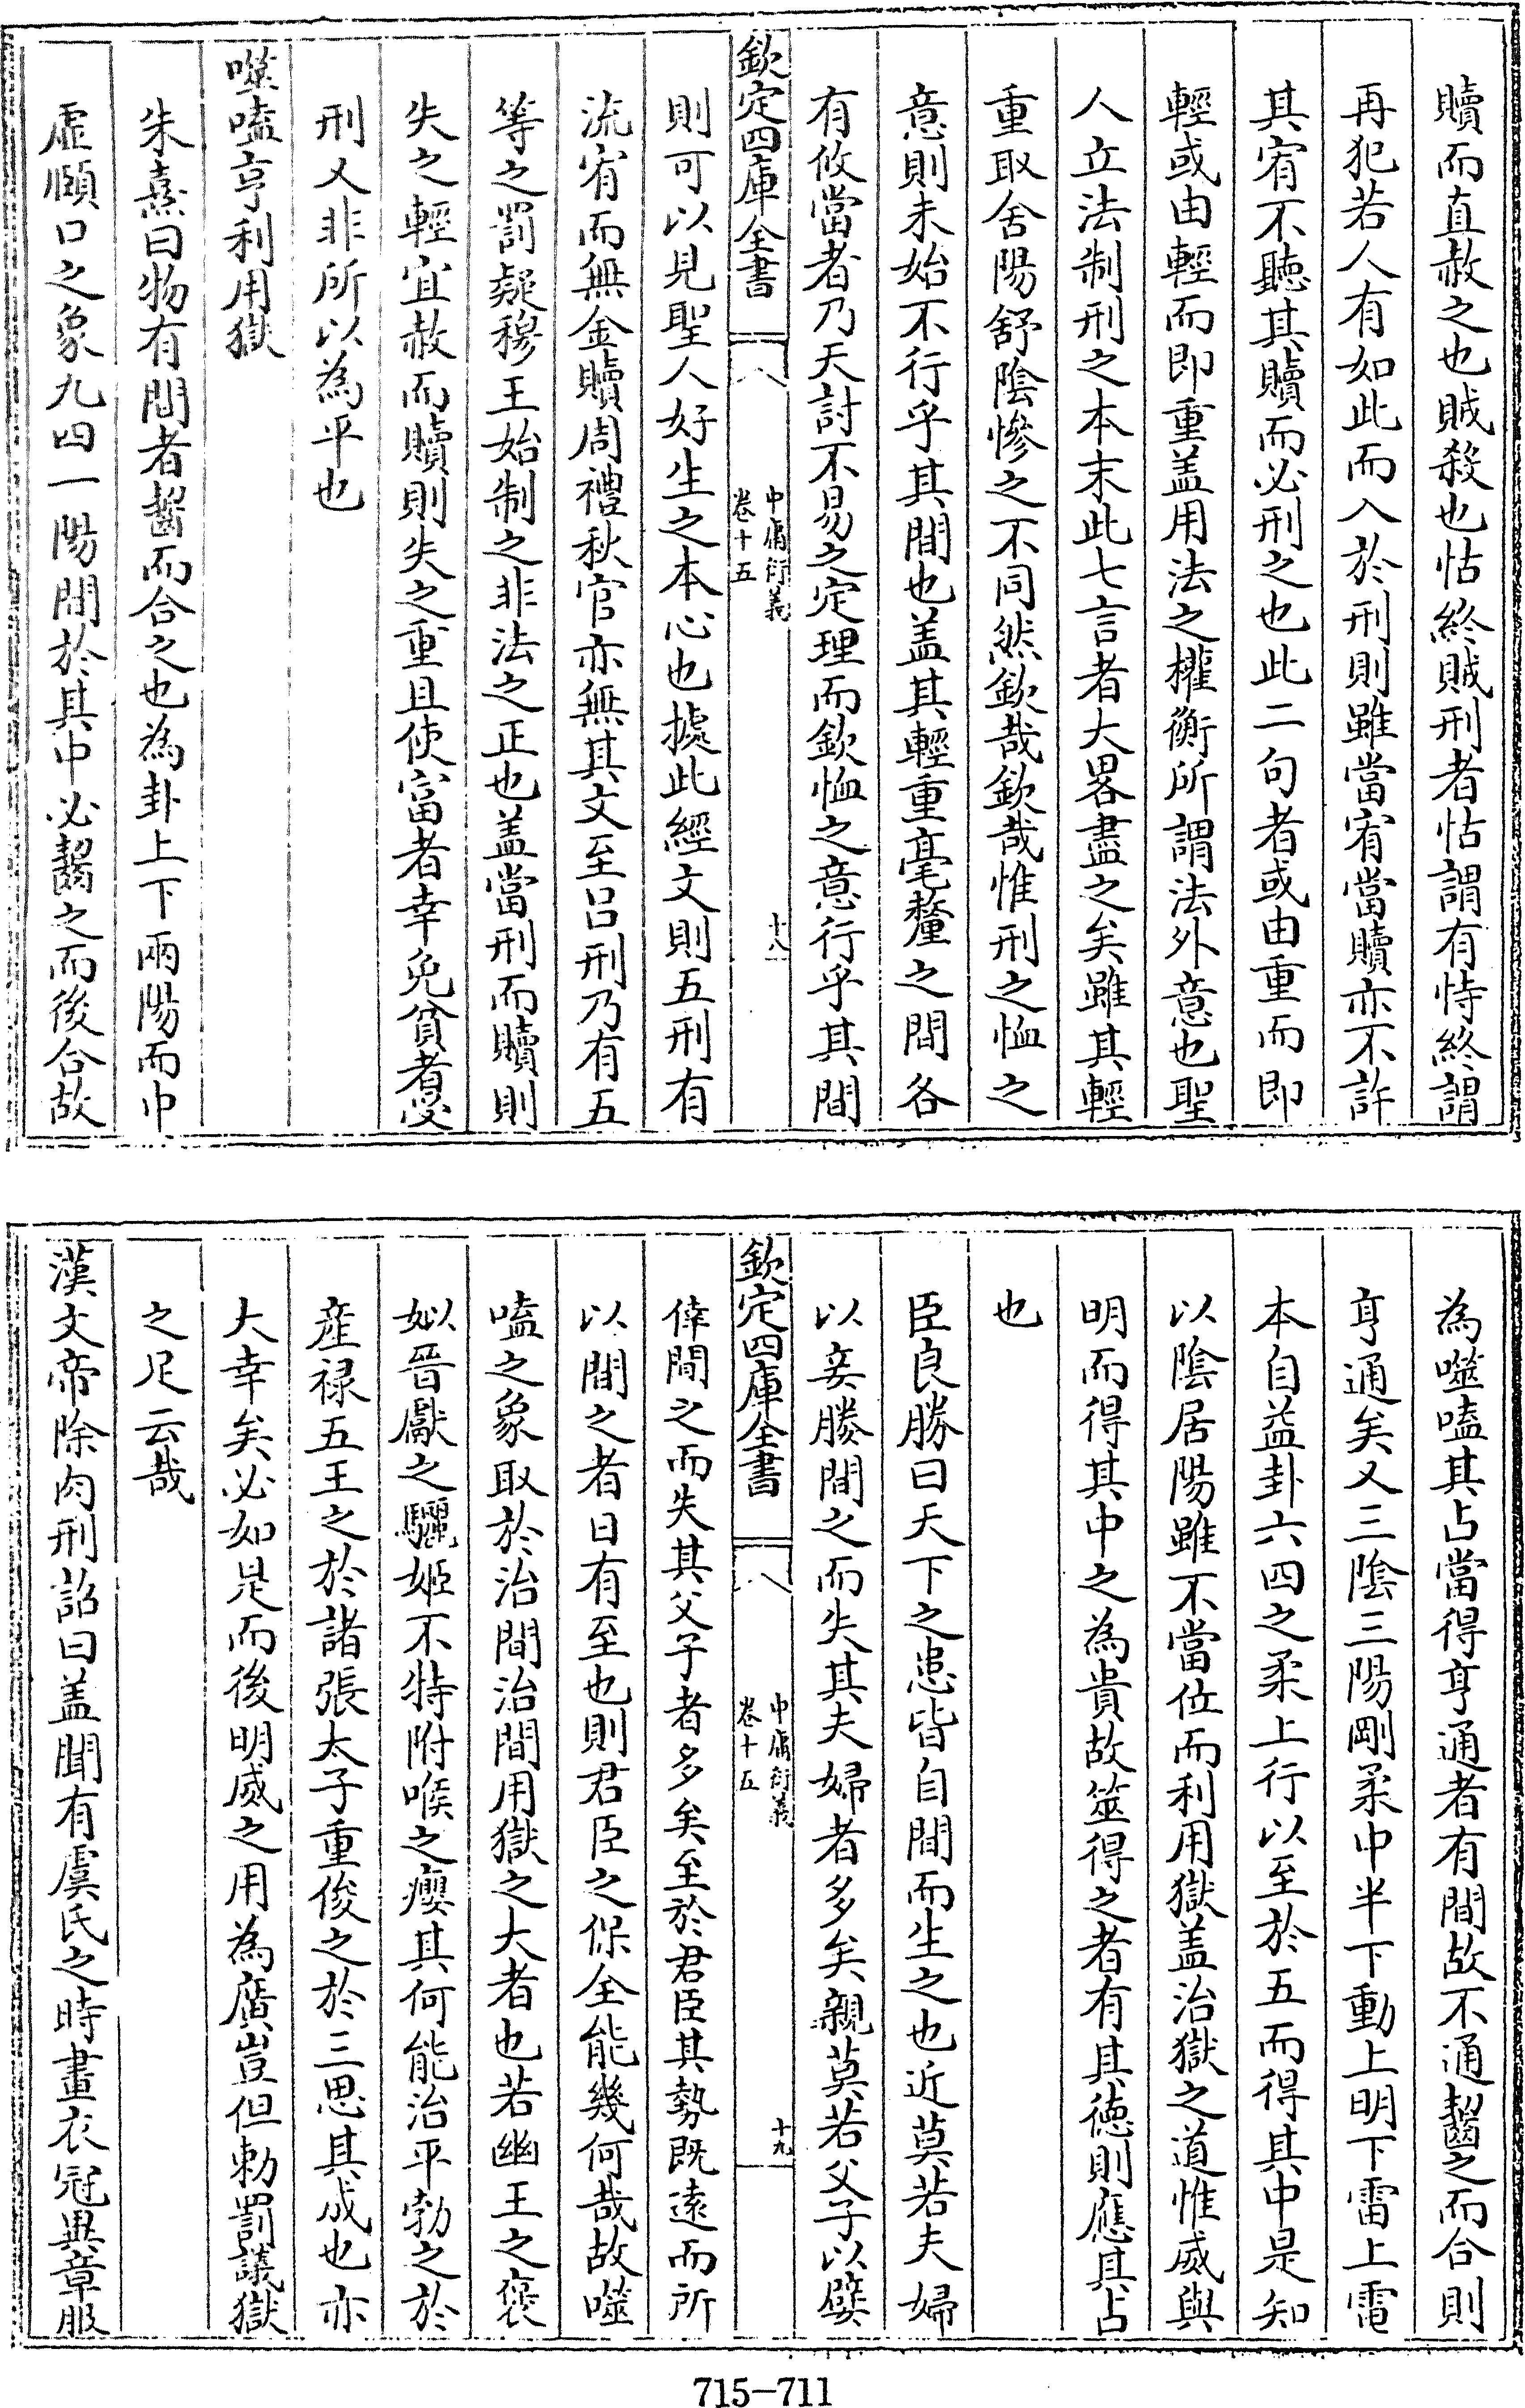 贖而直赦之也賊殺也怙終賊刑者怙謂有恃終謂
再犯若人有如此而入於刑則雖當宥當贖亦不許
其宥不聽其贖而必刑之也此二句者或由重而即
輕或由輕而即重盖用法之權衡所謂法外意也聖
人立法制刑之本末此七言者大畧盡之矣雖其輕
重取舍陽舒陰慘之不同然欽哉欽哉惟刑之恤之
意則未始不行乎其間也盖其輕重毫釐之間各
有攸當者乃天討不易之定理而欽恤之意行乎其間
欽定四庫全書 中庸衍義 卷十五 十八
則可以見聖人好生之本心也據此經文則五刑有
流宥而無金贖周禮秋官亦無其文至吕刑乃有五
等之罰疑穆王始制之非法之正也盖當刑而贖則
失之輕宜赦而贖則失之重且使富者幸免貧者受
刑又非所以為平也
噬嗑亨利用獄
朱熹曰物有間者齧而合之也為卦上下兩陽而中
虛頤口之象九四一陽間於其中必齧之而後合故
為噬嗑其占當得亨通者有間故不通齧之而合則
亨通矣又三陰三陽剛柔中半下動上明下雷上電
本自益卦六四之柔上行以至於五而得其中是知
以陰居陽雖不當位而利用獄盖治獄之道惟威與
明而得其中之為貴故筮得之者有其徳則應其占
也
臣良勝曰天下之患皆自間而生之也近莫若夫婦
以妾媵間之而失其夫婦者多矣親莫若父子以嬖
欽定四庫全書 中庸衍義 卷十五 十九
倖間之而失其父子者多矣至於君臣其勢既逺而所
以間之者日有至也則君臣之保全能幾何哉故噬
嗑之象取於治間治間用獄之大者也若幽王之褒
姒晉獻之驪姬不特附喉之癭其何能治平勃之於
産禄五王之於諸張太子重俊之於三思其成也亦
大幸矣必如是而後明威之用為廣豈但勅罰議獄
之足云哉
漢文帝除肉刑詔曰盖聞有虞氏之時畫衣冠異章服
715-711